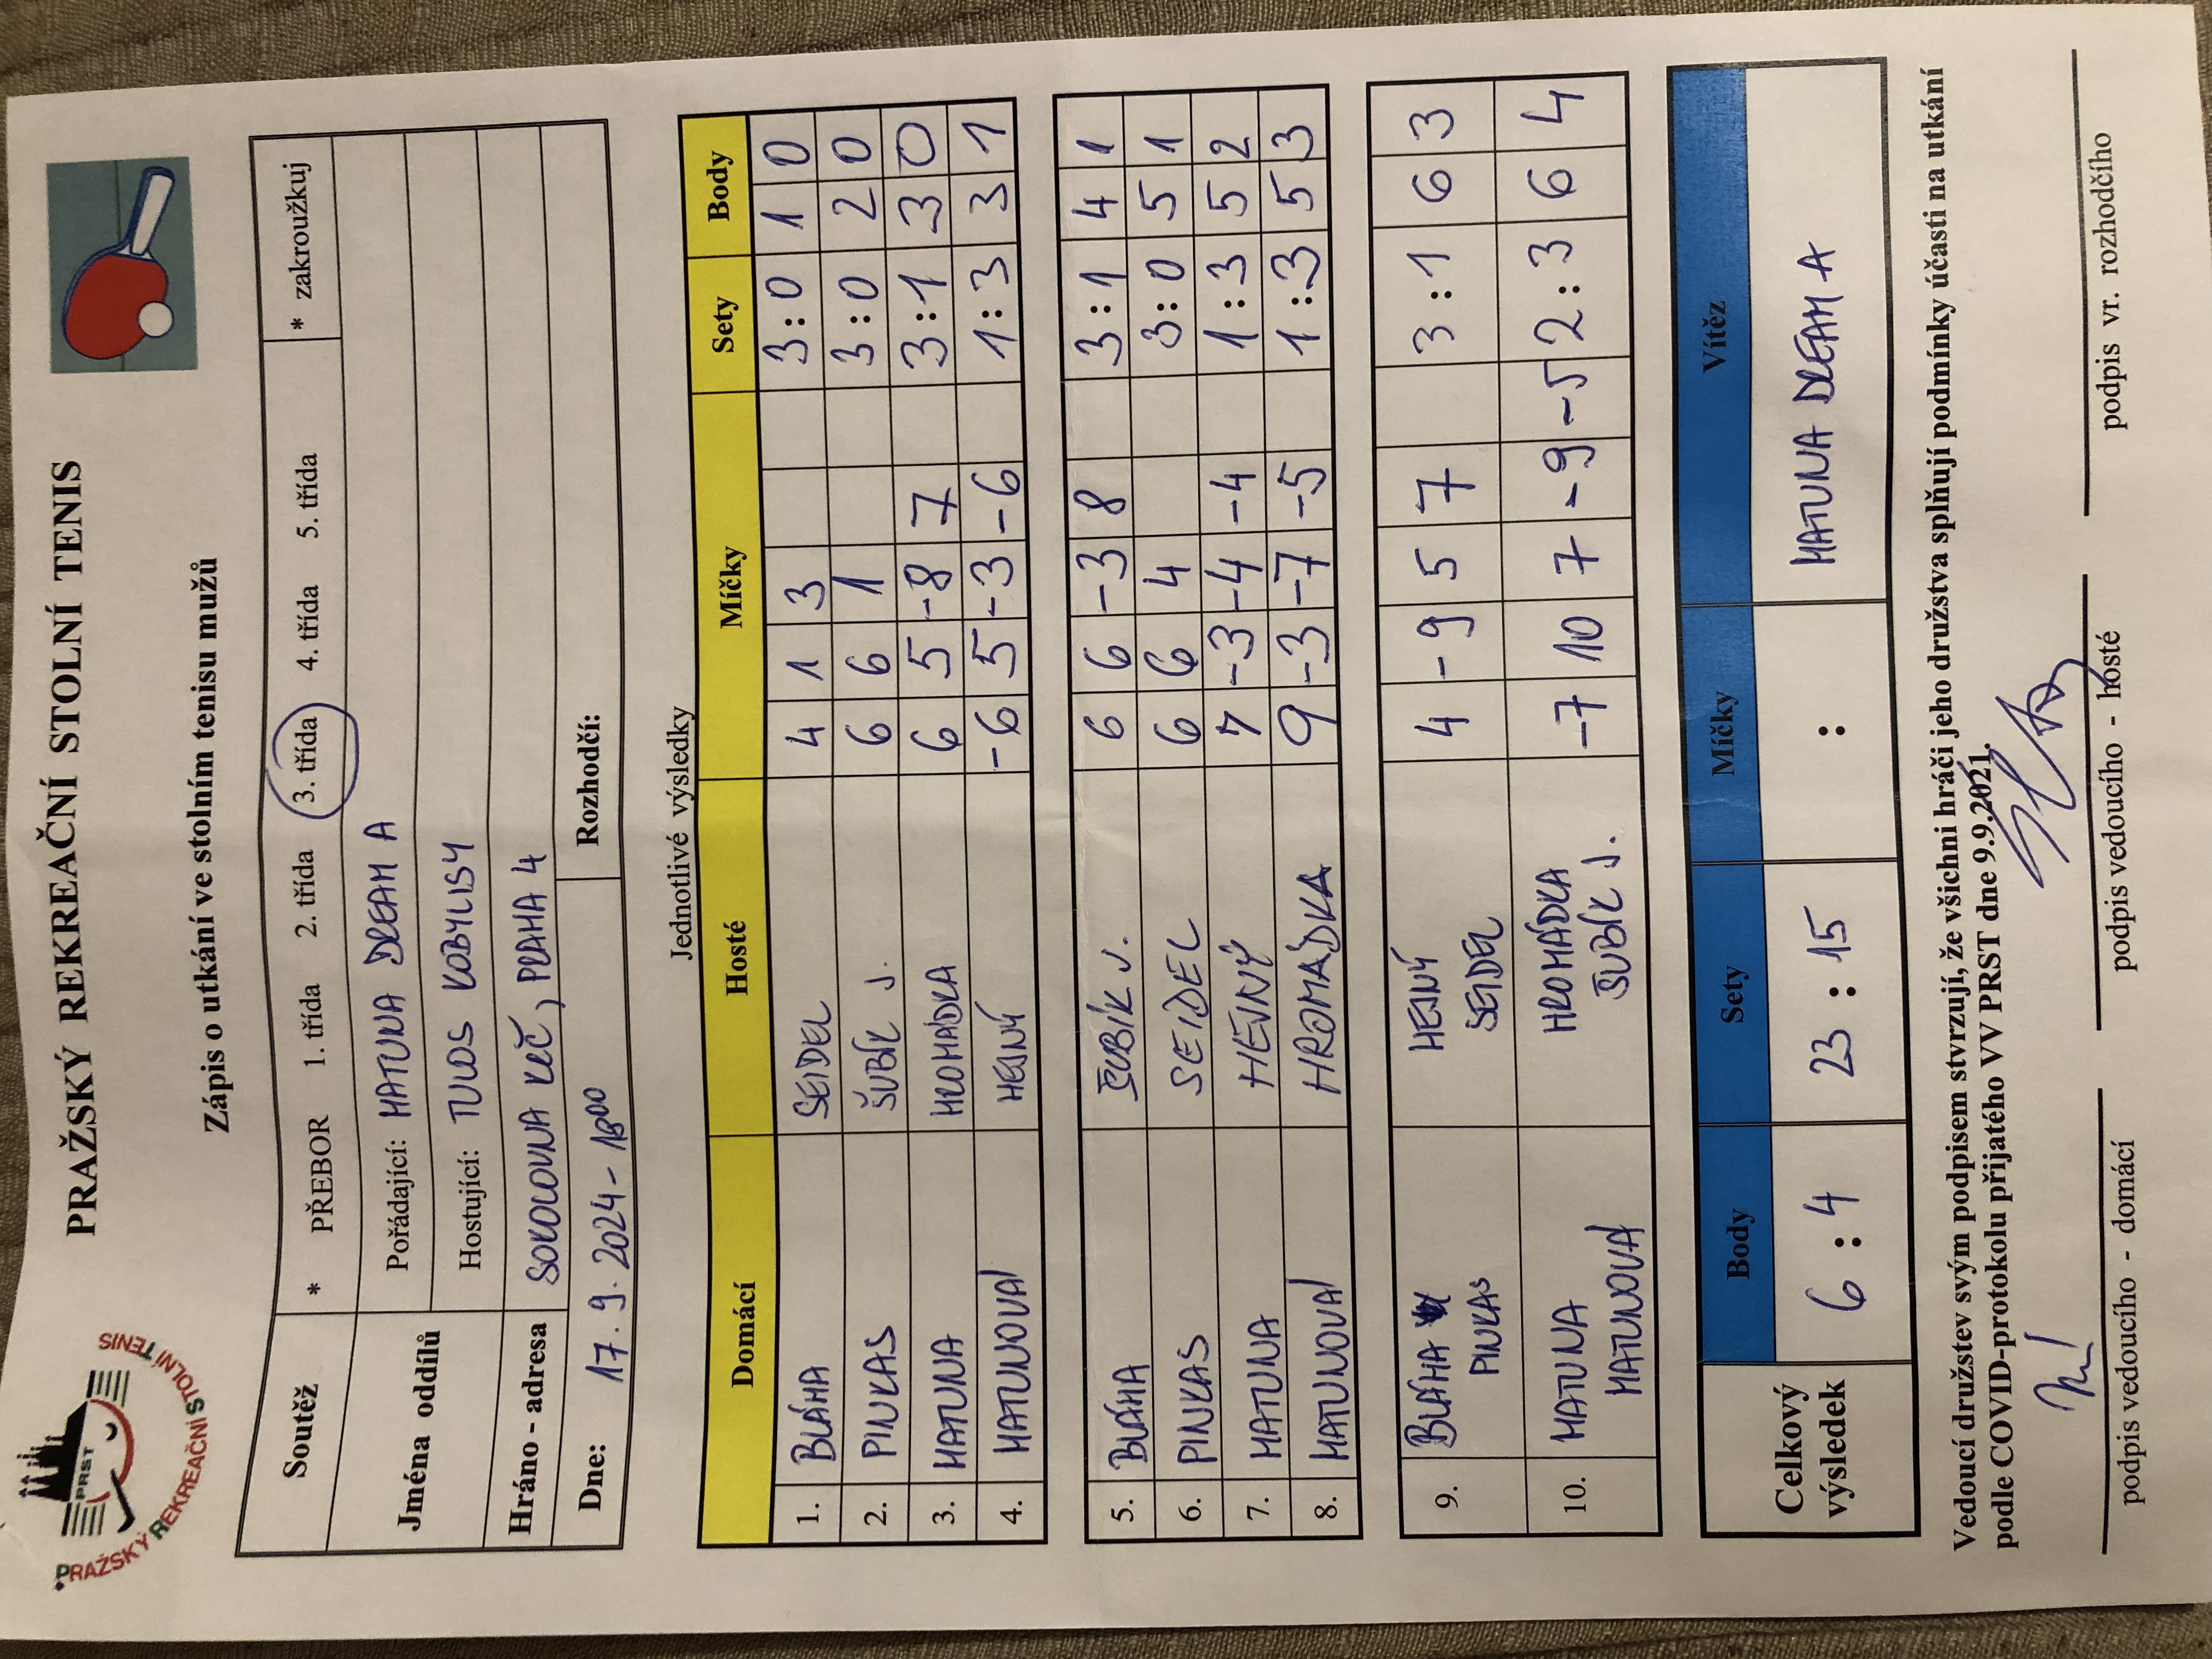 PRAŽSKÝ REKREAČNÍ STOLNÍ TENIS
PRST
PRAŽSKÝ REKREAČNÍ STOLNÍ TENIS
Zápis o utkání ve stolním tenisu mužů
Soutěž * PŘEBOR 1. třída 2. třída 3. třída 4. třída 5. třída * zakroužkuj
Jména oddílů Pořádající: MATUNA DREAM A
Hostující: TULOS KOBYLISY
Hráno - adresa SOKOLOVNA KRČ, PRAHA 4
Dne: 17. 9. 2024 - 1800 Rozhodčí:
Jednotlivé výsledky
Domácí Hosté Míčky Sety Body
1. BLÁHA SEIDEL 4 1 3 3:0 1 0
2. PINKAS ŠUBÍK J. 6 6 1 3:0 2 0
3. MATUNA HROMÁDKA 6 5 -8 7 3:1 3 0
4. MATUNOVÁ HEJNÝ -6 5 -3 -6 1:3 3 1
5. BLÁHA ŠUBÍK J. 6 6 -3 8 3:1 4 1
6. PINKAS SEIDEL 6 6 4 3:0 5 1
7. MATUNA HEJNÝ 7 -3 -4 -4 1:3 5 2
8. MATUNOVÁ HROMÁDKA 9 -3 -7 -5 1:3 5 3
9. BLÁHA HEJNÝ 4 -9 5 7 3:1 6 3
PINKAS SEIDEL
10. MATUNA HROMÁDKA -7 10 7 -9 -5 2:3 6 4
MATUNOVÁ ŠUBÍK J.
Celkový výsledek Body Sety Míčky Vítěz
6 : 4 23 : 15 : MATUNA DREAM A
Vedoucí družstev svým podpisem stvrzují, že všichni hráči jeho družstva splňují podmínky účasti na utkání
podle COVID-protokolu přijatého VV PRST dne 9.9.2021.
podpis vedoucího - domácí podpis vedoucího - hosté podpis vr. rozhodčího